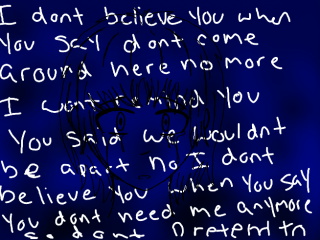 I dont believe you when
You say dont come
around here no more
I wont remind you
You said we wouldnt
be apart no I dont
believe you when you say
You dont need me anymore
So dont pretend to